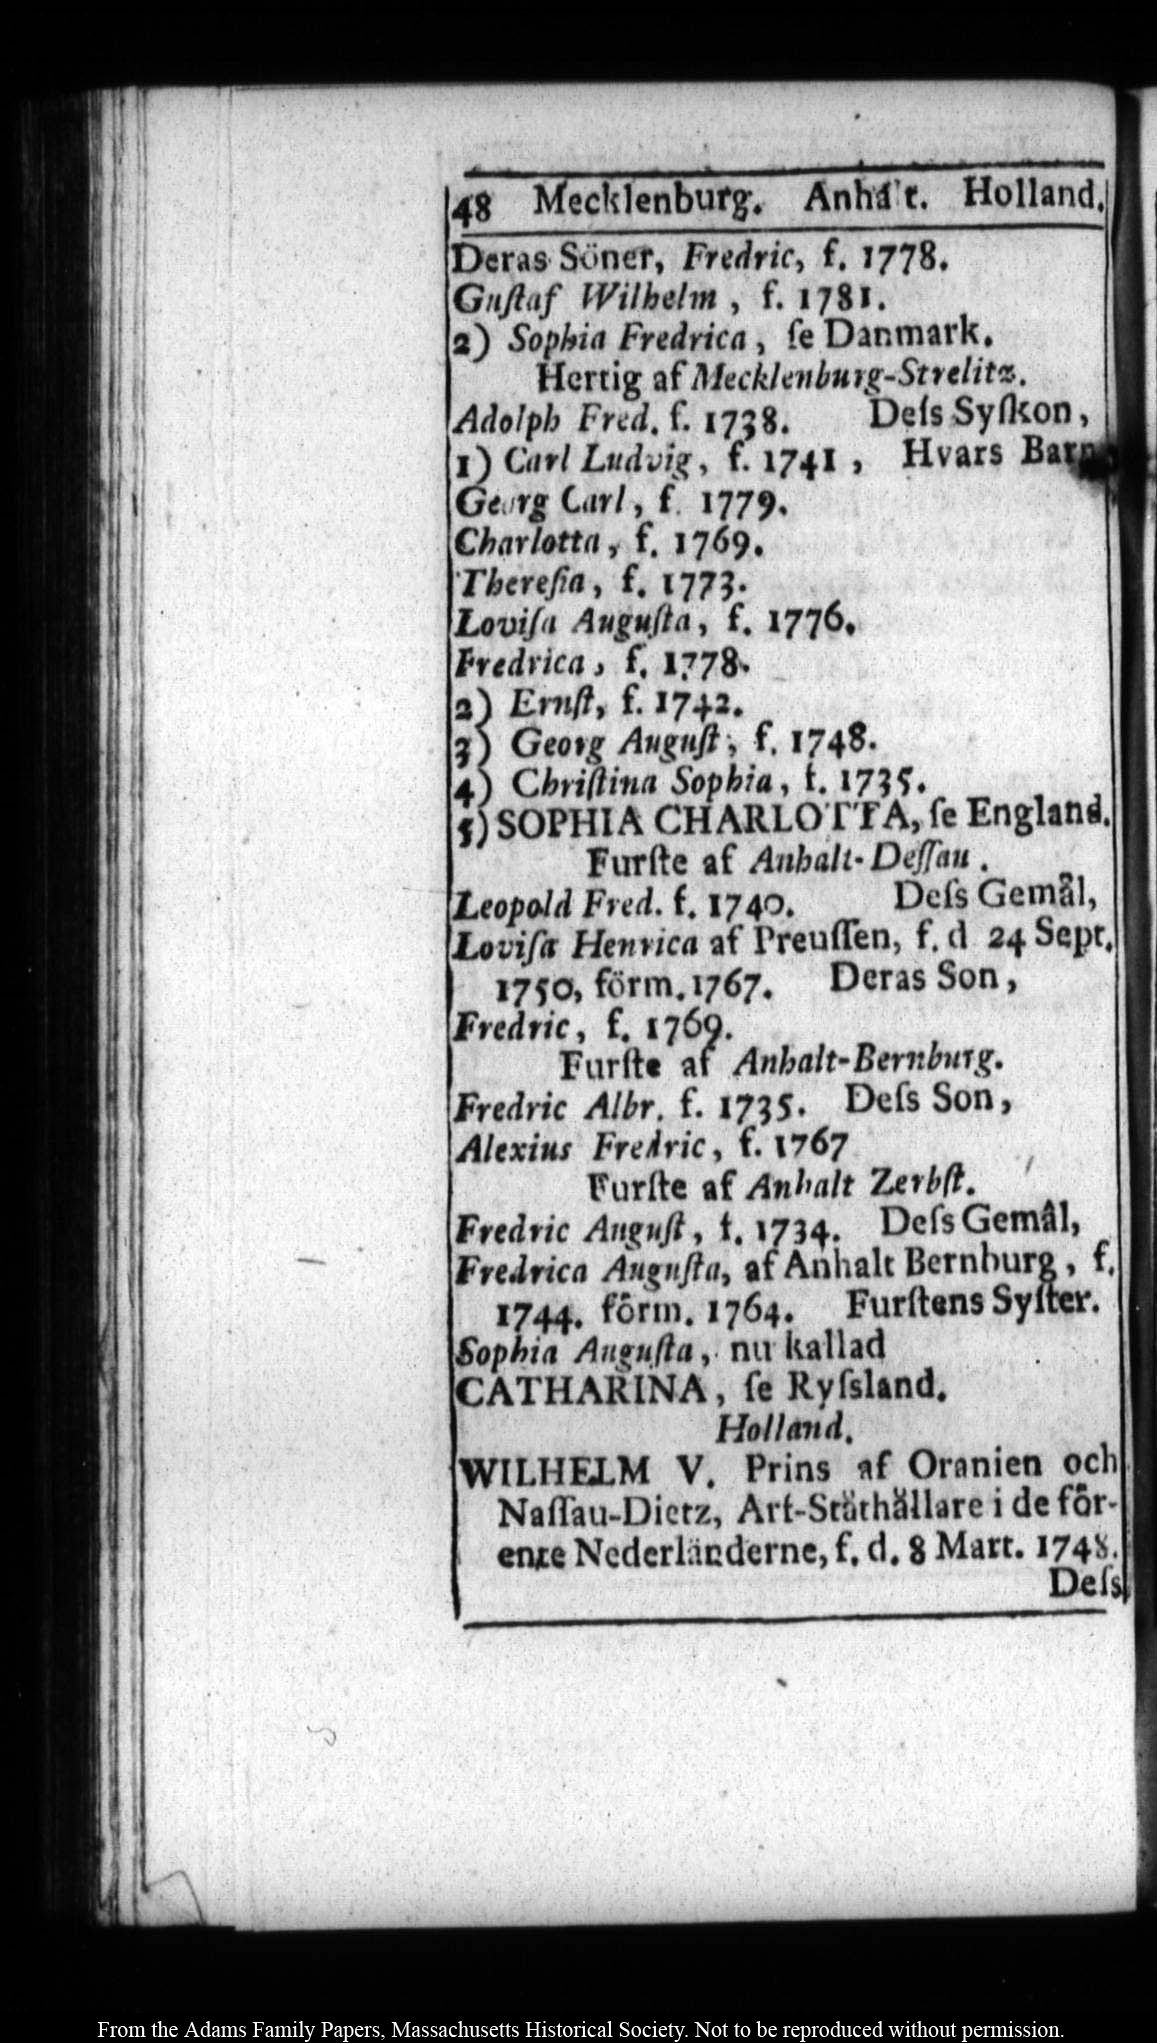 48 Mecklenburg. Anhalt. Holland.
Deras Söner, Fredric, f. 1778.
Guſtaf Wilhelm, f. 1781.
2) Sophia Fredrica, ſe Danmark.
Hertig af Mecklenburg-Strelitz.
Adolph Fred. f. 1738. Deſs Syſkon,
1) Carl Ludvig, f. 1741, Hvars Barn
Georg Carl, f. 1779.
Charlotta, f. 1769.
Thereſia, f. 1773.
Loviſa Auguſta, f. 1776.
Fredrica, f. 1778.
2) Ernſt, f. 1742.
3) Georg Auguſt, f. 1748.
4) Chriſtina Sophia, f. 1735.
5) SOPHIA CHARLOTTA, ſe England.
Furſte af Anhalt-Deſſau.
Leopold Fred. f. 1740. Deſs Gemâl,
Loviſa Henrica af Preuſſen, f. d 24 Sept.
1750, förm. 1767. Deras Son,
Fredric, f. 1769.
Furſte af Anhalt-Bernburg.
Fredric Albr. f. 1735. Deſs Son,
Alexius Fredric, f. 1767
Furſte af Anhalt Zerbſt.
Fredric Auguſt, f. 1734. Deſs Gemâl,
Fredrica Auguſta, af Anhalt Bernburg, f.
1744. förm. 1764. Furſtens Syſter.
Sophia Auguſta, nu kallad
CATHARINA, ſe Ryſsland.
Holland.
WILHELM V. Prins af Oranien och
Naſſau-Dietz, Arf-Stäthållare i de för-
ente Nederländerne, f. d. 8 Mart. 1748.
Deſs
From the Adams Family Papers, Massachusetts Historical Society. Not to be reproduced without permission.